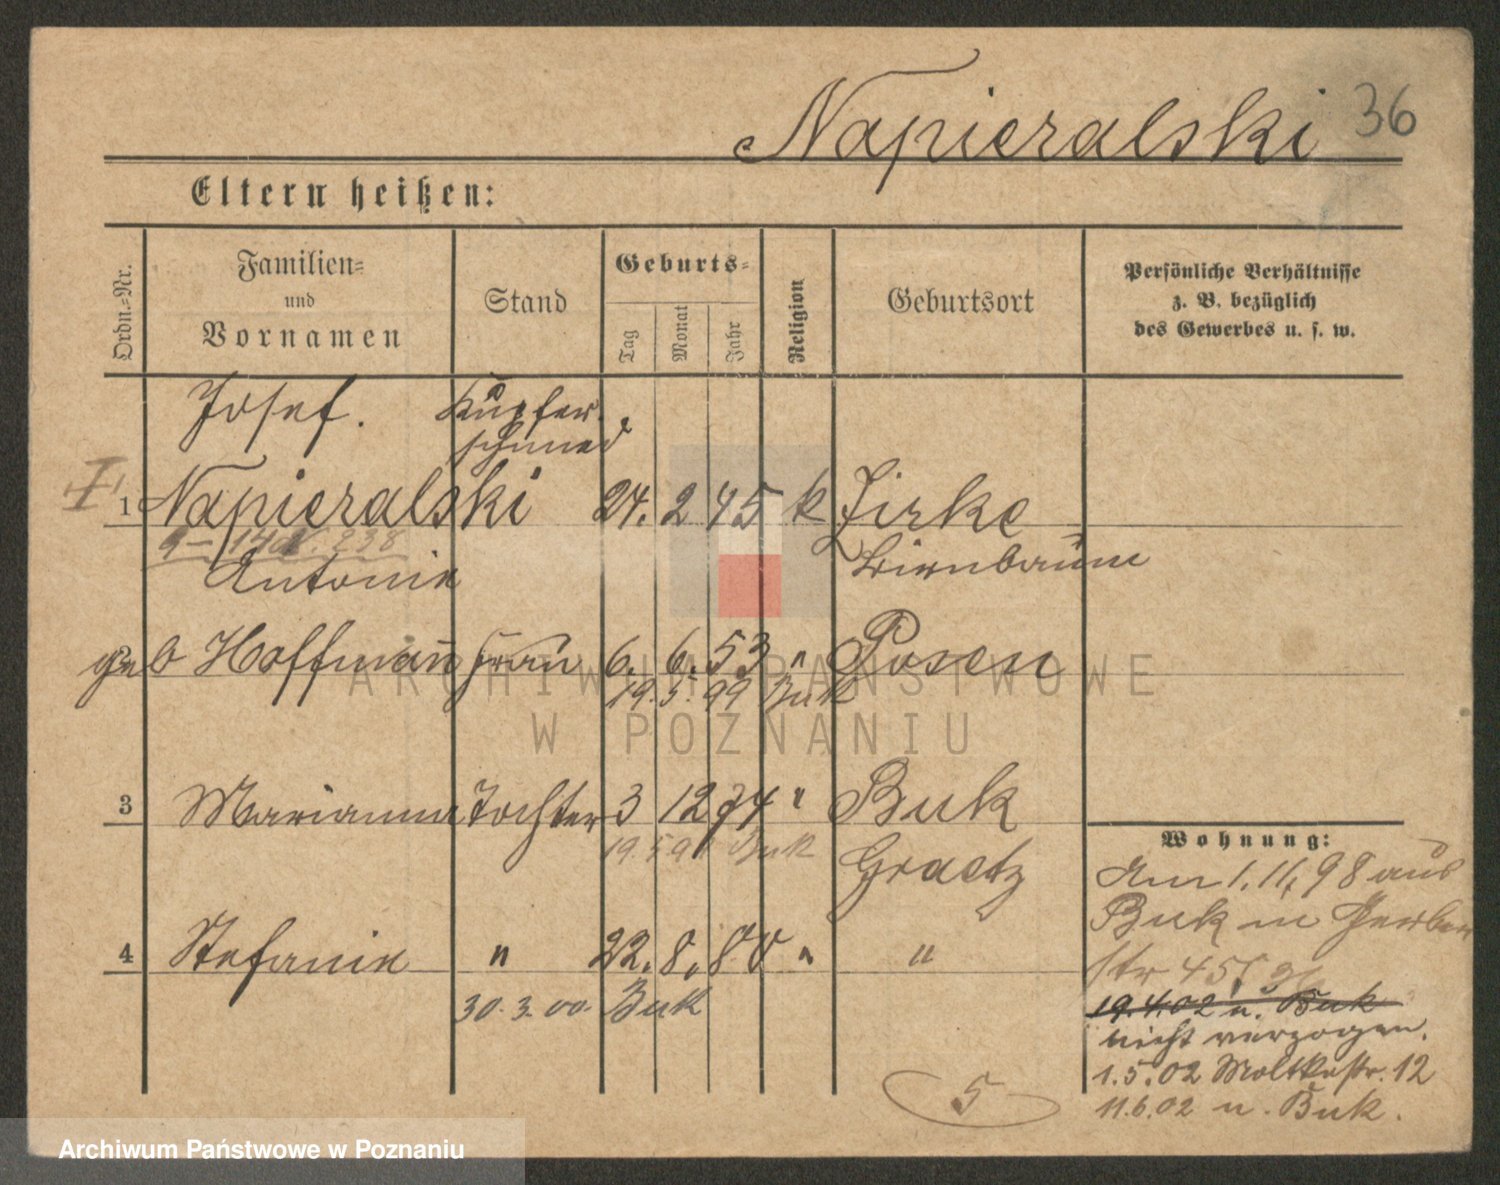 Napieralski 36
Eltern heißen:
Ordn.-Nr.
Familien-
und
Vornamen
Stand
Geburts-
Tag
Monat
Jahr
Religion
Geburtsort
Persönliche Verhältnisse
z. B. bezüglich
des Gewerbes u. s. w.
Josef. Kupfer-
schmied
1 Napieralski 24. 2 45 k Zirke
Birnbaum
Antonie
geb Hoffmann Frau 6. 6. 53 " Posen
19. 5. 99 Buk
3 Marianna Tochter 3 12 74 " Buk
19. 5 9 Buk
Graetz
4 Stefanie " 22. 8. 80 " "
30. 3. 00. Buk
Wohnung:
Am 1. 11. 98 aus
Buk in Gerber
str 45
19. 4. 02 n. Buk
nicht verzogen.
1. 5. 02 Moltkestr. 12
11. 6. 02 n. Buk.
5
ARCHIWUM PAŃSTWOWE
W POZNANIU
Archiwum Państwowe w Poznaniu